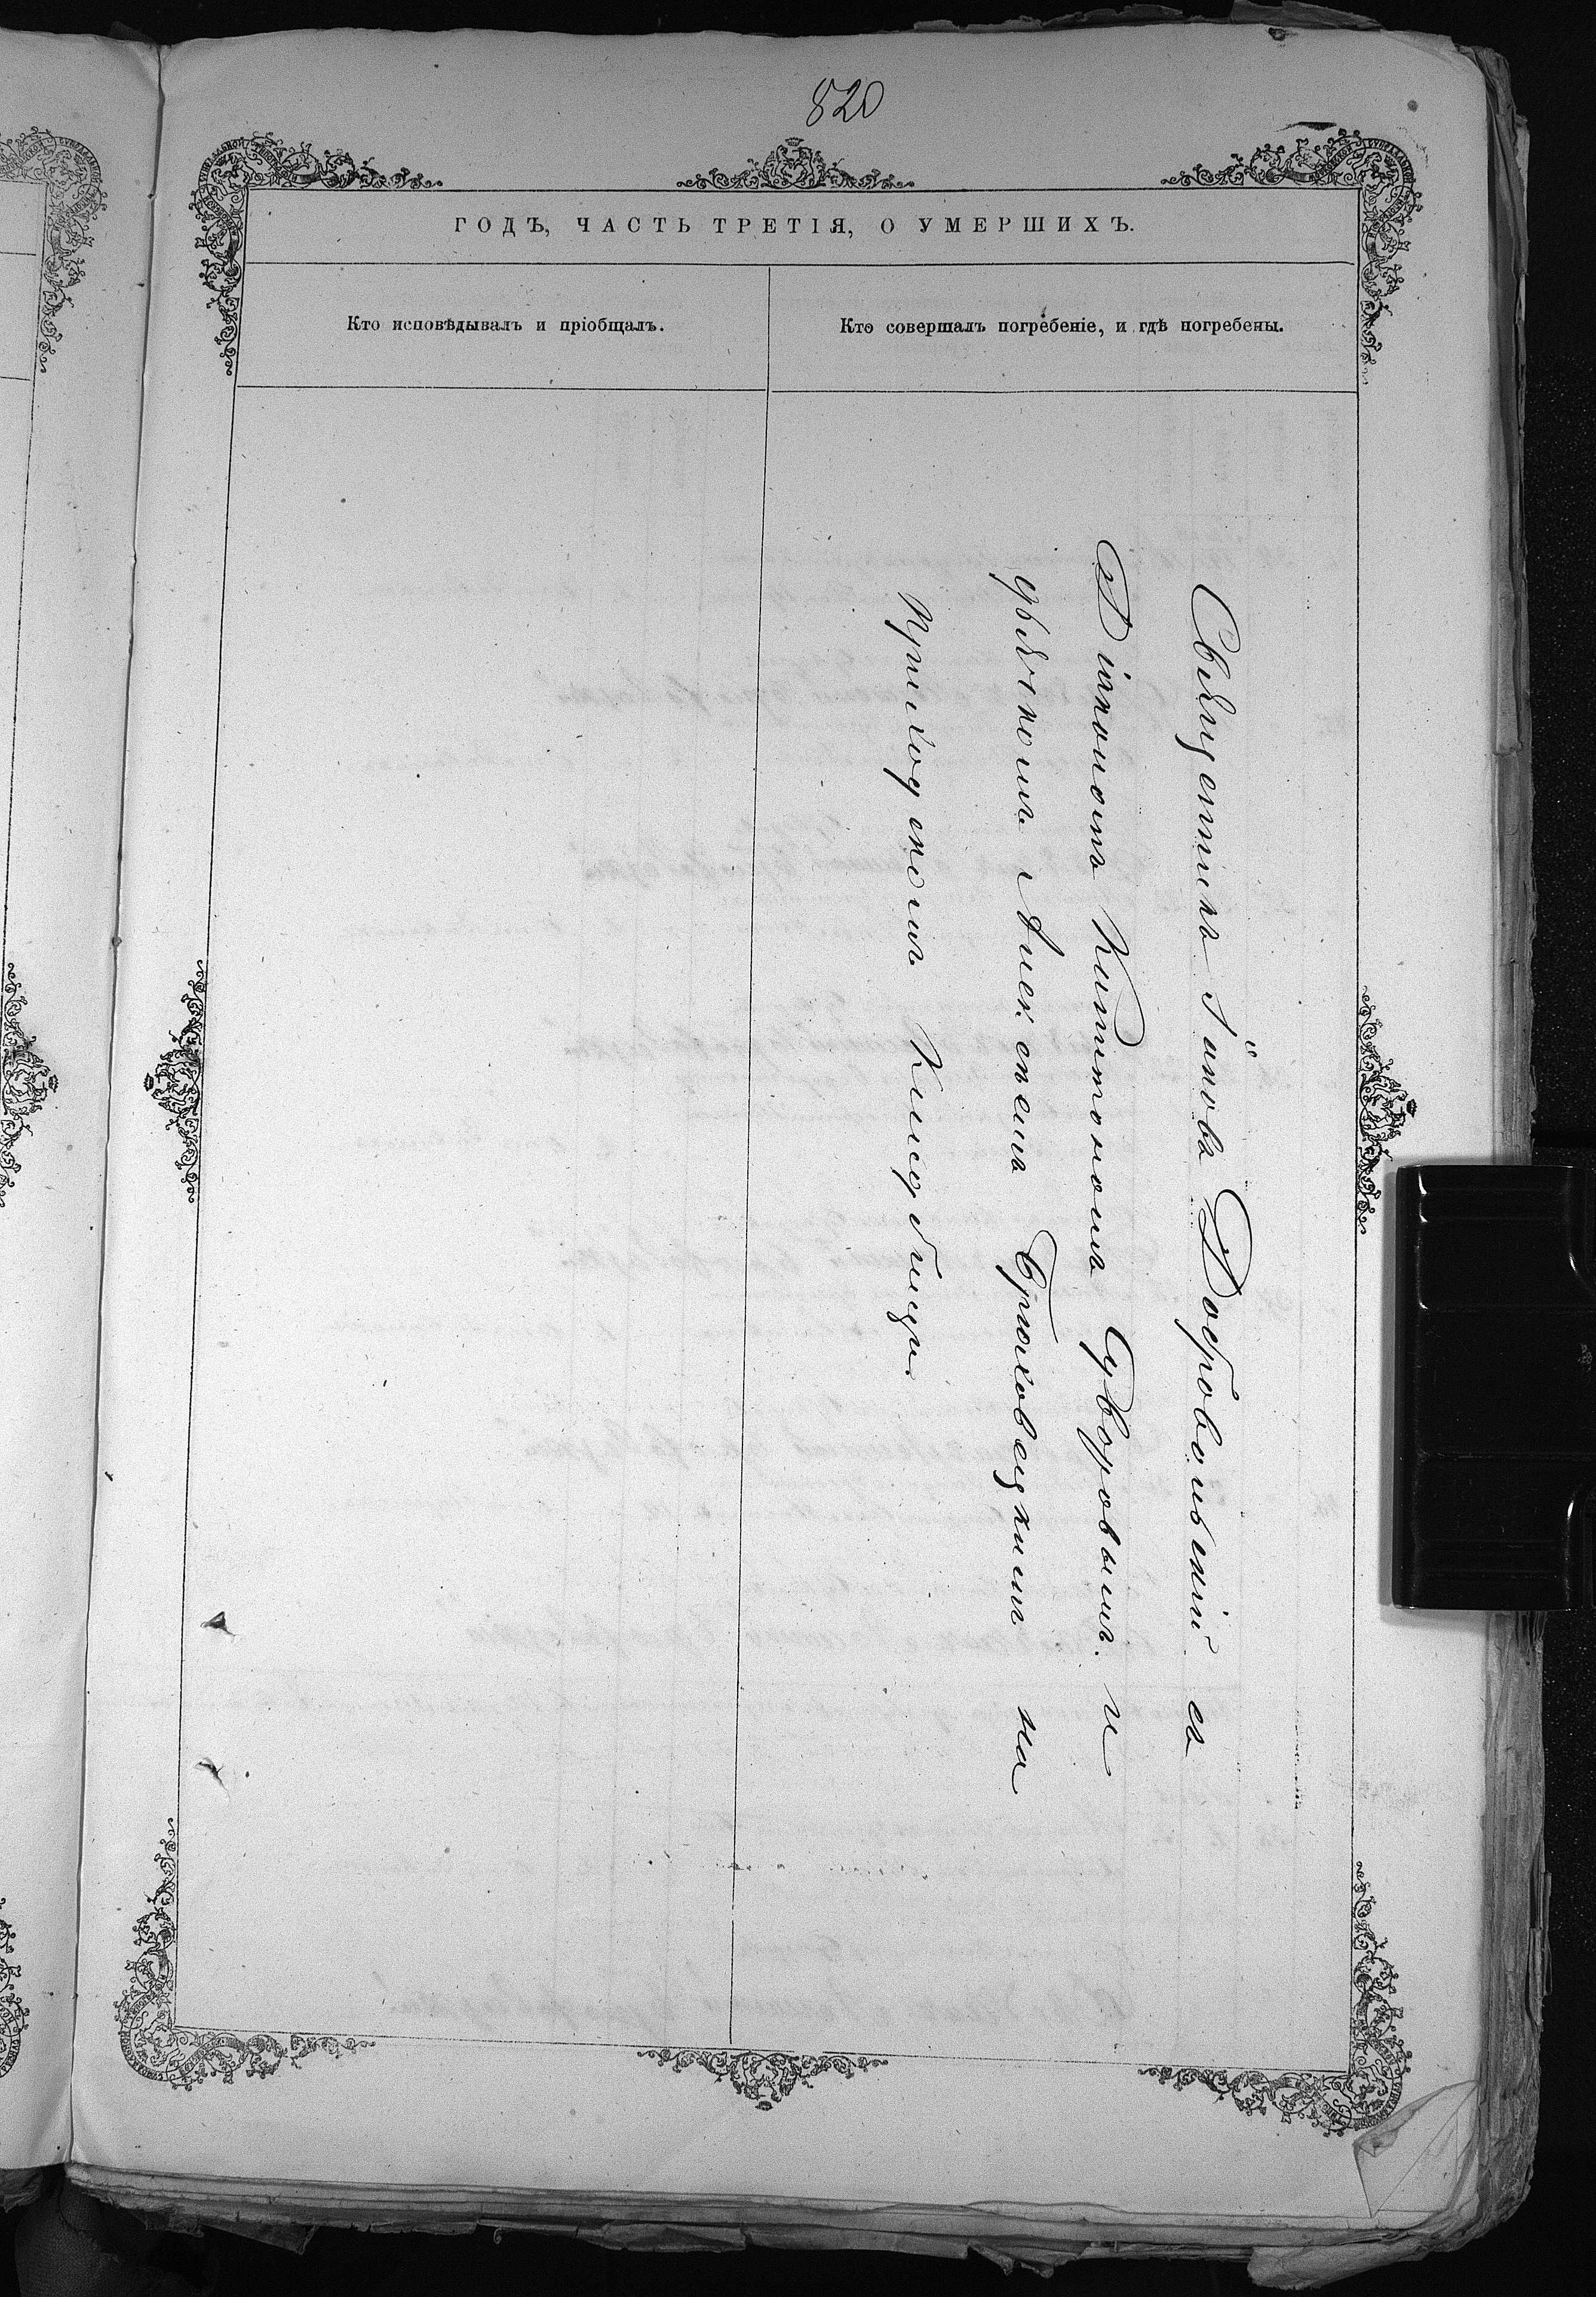 820
ГОДЪ, ЧАСТЬ ТРЕТІЯ, О УМЕРШИХЪ.
Кто исповѣдывалъ и пріобщалъ.
Кто совершалъ погребеніе, и гдѣ погребены.
Священникъ Іаковъ Добровольскій съ
Діакономъ Капитономъ Суворовымъ и
дьячкомъ Алексѣемъ Брюховецкимъ на
Приходскомъ Кладбищѣ.